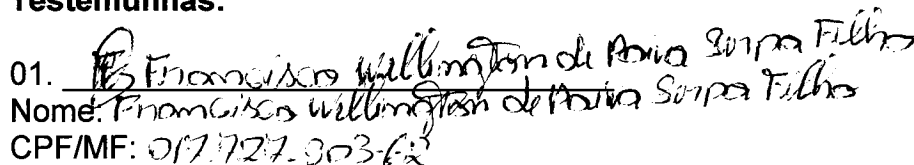 Testemunhas:
01. Francisco Wellington de Paiva Serpa Filho
Nome: Francisco Wellington de Paiva Serpa Filho
CPF/MF: 017.727.303-